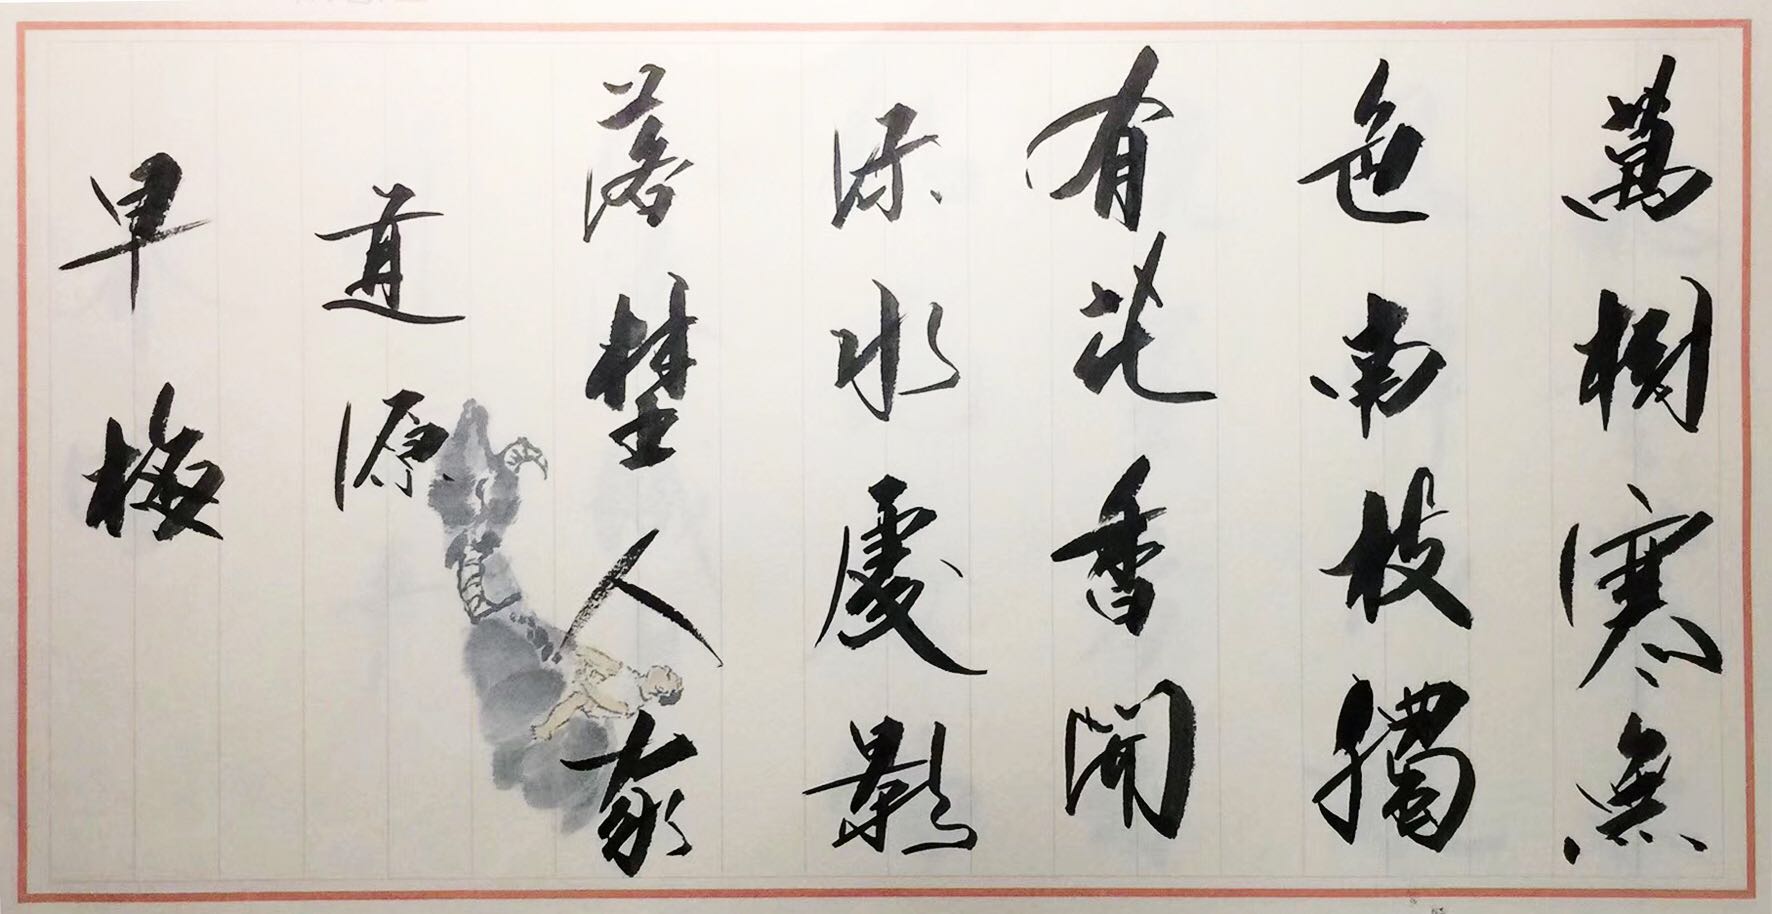 萬樹寒無
色南枝獨
有花香聞
流水處影
落埜人家
道源
早梅